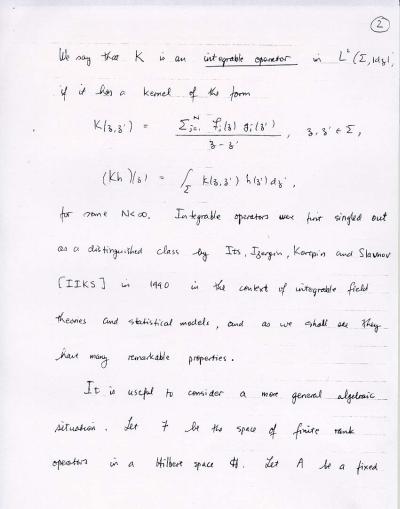 2
We say that K is an integrable operator in L²(Σ, |dz|),
if it has a kernel of the form
K(z,z') = Σ_{i=1}^N f_i(z) g_i(z') / z - z' , z, z' ∈ Σ,
(Kh)(z) = ∫_Σ K(z,z') h(z') dz',
for some N<∞. Integrable operators were first singled out
as a distinguished class by Its, Izergin, Korepin and Slavnov
[IIKS] in 1990 in the context of integrable field
theories and statistical models, and as we shall see they
have many remarkable properties.
It is useful to consider a more general algebraic
situation. Let F be the space of finite rank
operators in a Hilbert space H. Let A be a fixed